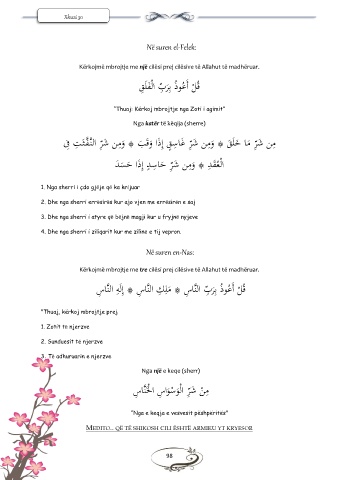 Xhuzi 30
Në suren el-Felek:
Kërkojmë mbrojtje me një cilësi prej cilësive të Allahut të madhëruar.
قُلْ أَعُوذُ بِرَبِّ الْفَلَقِ
"Thuaj: Kërkoj mbrojtje nga Zoti i agimit"
Nga katër të këqija (sherre)
مِن شَرِّ مَا خَلَقَ * وَمِن شَرِّ غَاسِقٍ إِذَا وَقَبَ * وَمِن شَرِّ النَّفَّٰثَٰتِ فِى
الْعُقَدِ * وَمِن شَرِّ حَاسِدٍ إِذَا حَسَدَ
1. Nga sherri i çdo gjëje që ka krijuar
2. Dhe nga sherri errësirës kur ajo vjen me errësirën e saj
3. Dhe nga sherri i atyre që bëjnë magji kur u fryjnë nyjeve
4. Dhe nga sherri i ziliqarit kur me zilinë e tij vepron.
Në suren en-Nas:
Kërkojmë mbrojtje me tre cilësi prej cilësive të Allahut të madhëruar.
قُلْ أَعُوذُ بِرَبِّ النَّاسِ * مَلِكِ النَّاسِ * إِلَٰهِ النَّاسِ
"Thuaj, kërkoj mbrojtje prej
1. Zotit të njerzve
2. Sunduesit të njerzve
3. Të adhuruarin e njerzve
Nga një e keqe (sherr)
مِنْ شَرِّ الْوَسْوَاسِ الْخَنَّاسِ
"Nga e keqja e vesvesit pëshpëritës"
MEDITO... QË TË SHIKOSH CILI ËSHTË ARMIKU YT KRYESOR
98